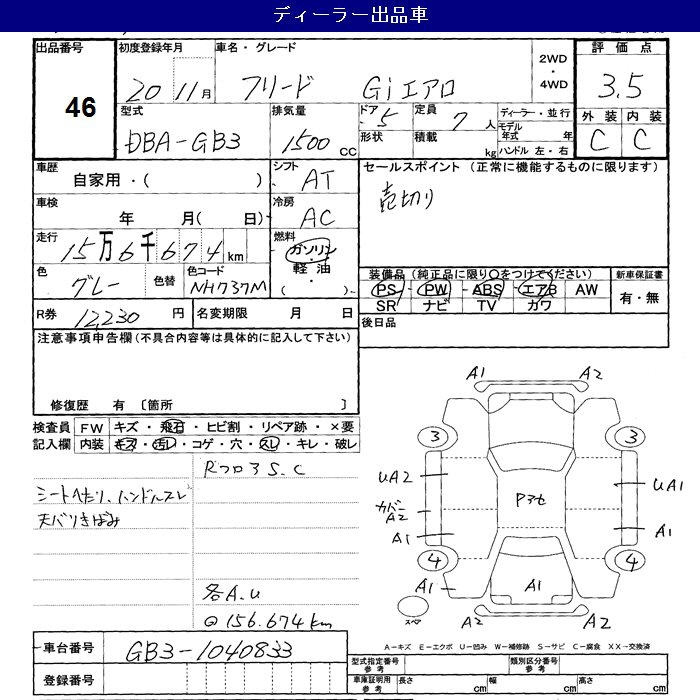 ディーラー出品車
出品番号
46
初度登録年月
20 11月
車名・グレード
フリード Giエアロ
2WD
・
4WD
評価点
3.5
外装 内装
C C
型式
DBA-GB3
排気量
1500 cc
ドア 5
形状
定員 7人
積載 kg
ディーラー・並行
モデル年式 年
ハンドル 左・右
車歴
自家用・( )
シフト
AT
セールスポイント (正常に機能するものに限ります)
売切り
車検
年 月( 日)
冷房
AC
走行
15万6千674km
燃料
ガソリン
軽油
( )
色
グレー
色替
色コード
NH737M
装備品 (純正品に限り○をつけてください)
PS・PW・ABS・エアB AW
SR ナビ TV カワ
新車保証書
有・無
R券 12,230円
名変期限 月 日
後日品
注意事項申告欄 (不具合内容等は具体的に記入して下さい)
修復歴 有 〔箇所 〕
検査員
記入欄
FW キズ・飛石・ヒビ割・リペア跡・×要
内装 キズ・汚レ・コゲ・穴・スレ・キレ・破レ
Rフロア S.C
シートへたり、ハンドルスレ
天バリきばみ
各A.U
@156.674km
A1 A2
3 3
UA2 UA1
カバーA2
Pアセ
A1 A1
4 4
A1 A1
スペ
A2 A2
A-キズ E-エクボ U-凹み W-補修跡 S-サビ C-腐食 XX-交換済
車台番号 GB3-1040833
登録番号
型式指定番号
参考
類別区分番号
参考
車庫証明用
参考
長さ cm 幅 cm 高さ cm